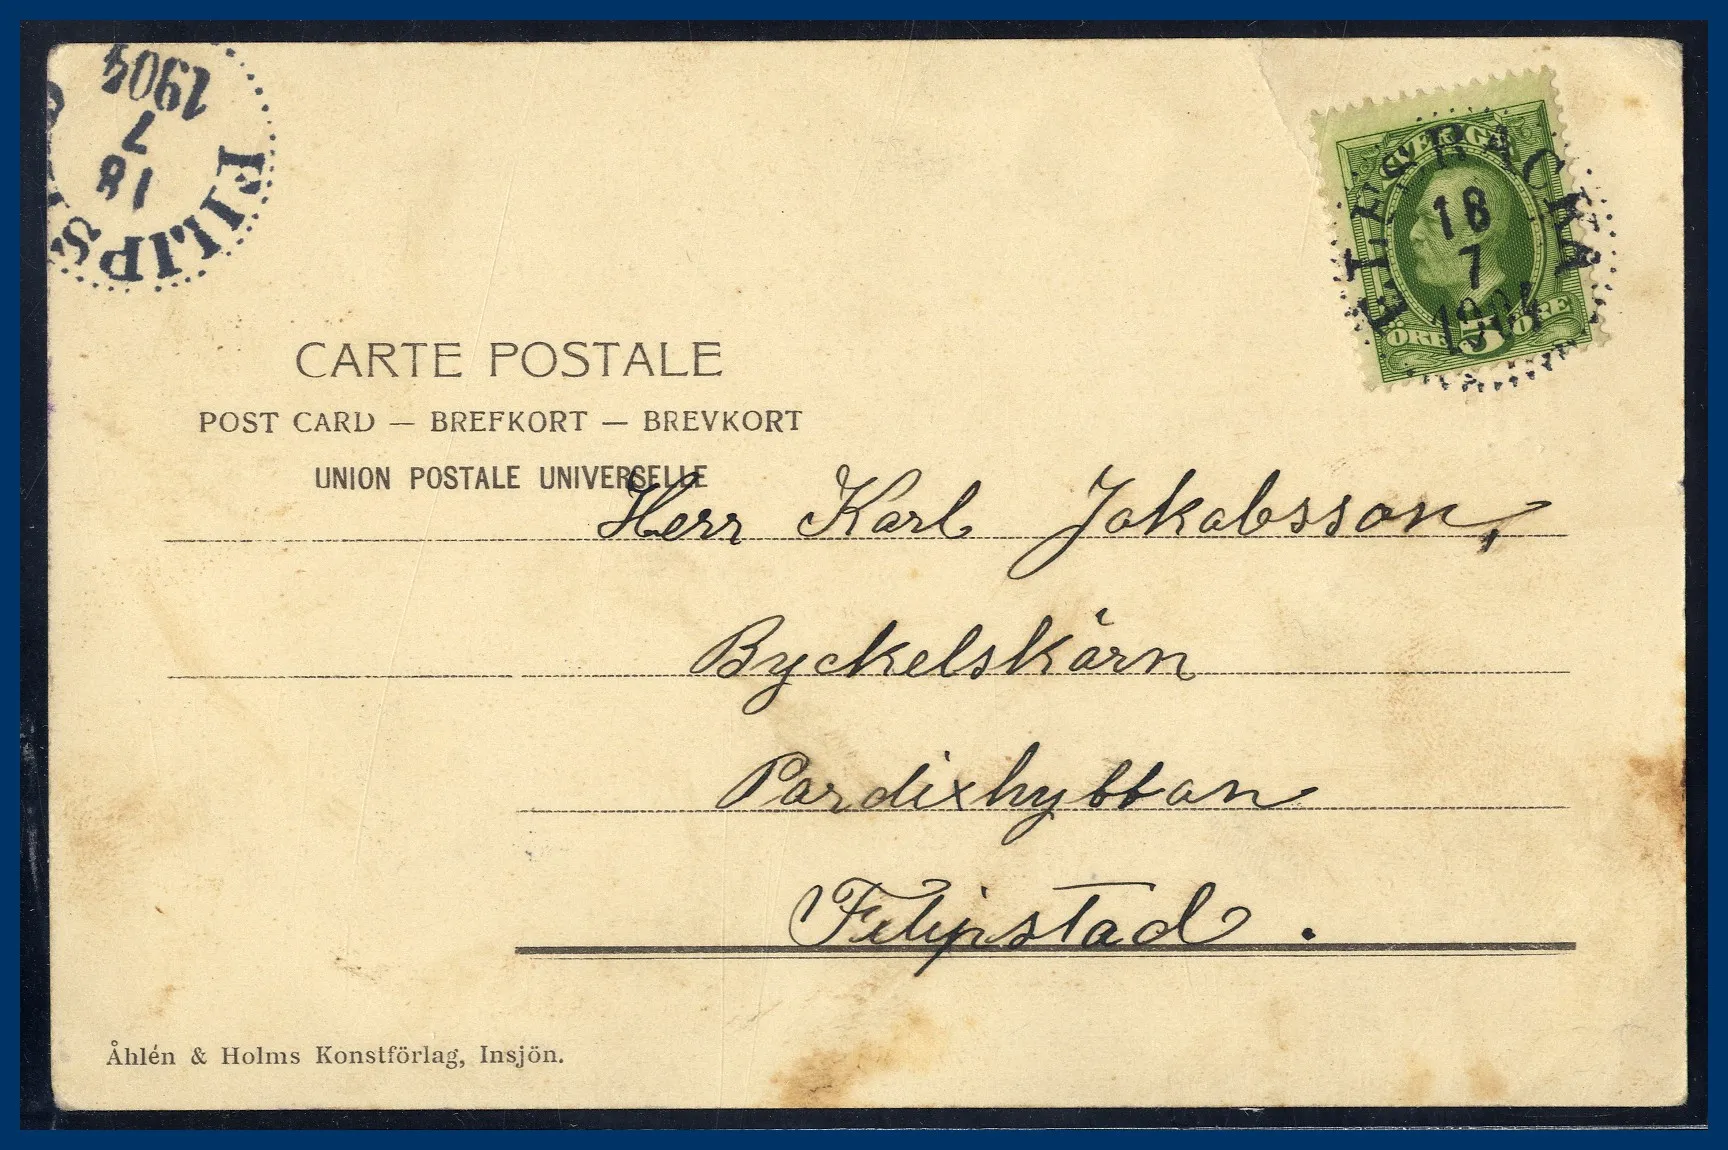 1904
7
18
FILIPS
SVERIGE
ELFSBACKA
18
7
1904
ÖRE 5 ÖRE
CARTE POSTALE
POST CARD — BREFKORT — BREVKORT
UNION POSTALE UNIVERSELLE
Herr Karl Jakobsson,
Byckelskärn
Pardixhyttan
Filipstad.
Åhlén & Holms Konstförlag, Insjön.